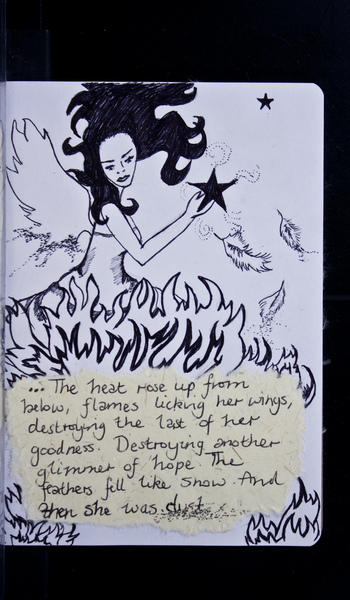 ... The heat rose up from
below, flames licking her wings,
destroying the last of her
goodness. Destroying another
glimmer of hope. The
feathers fell like snow. And
then she was dust